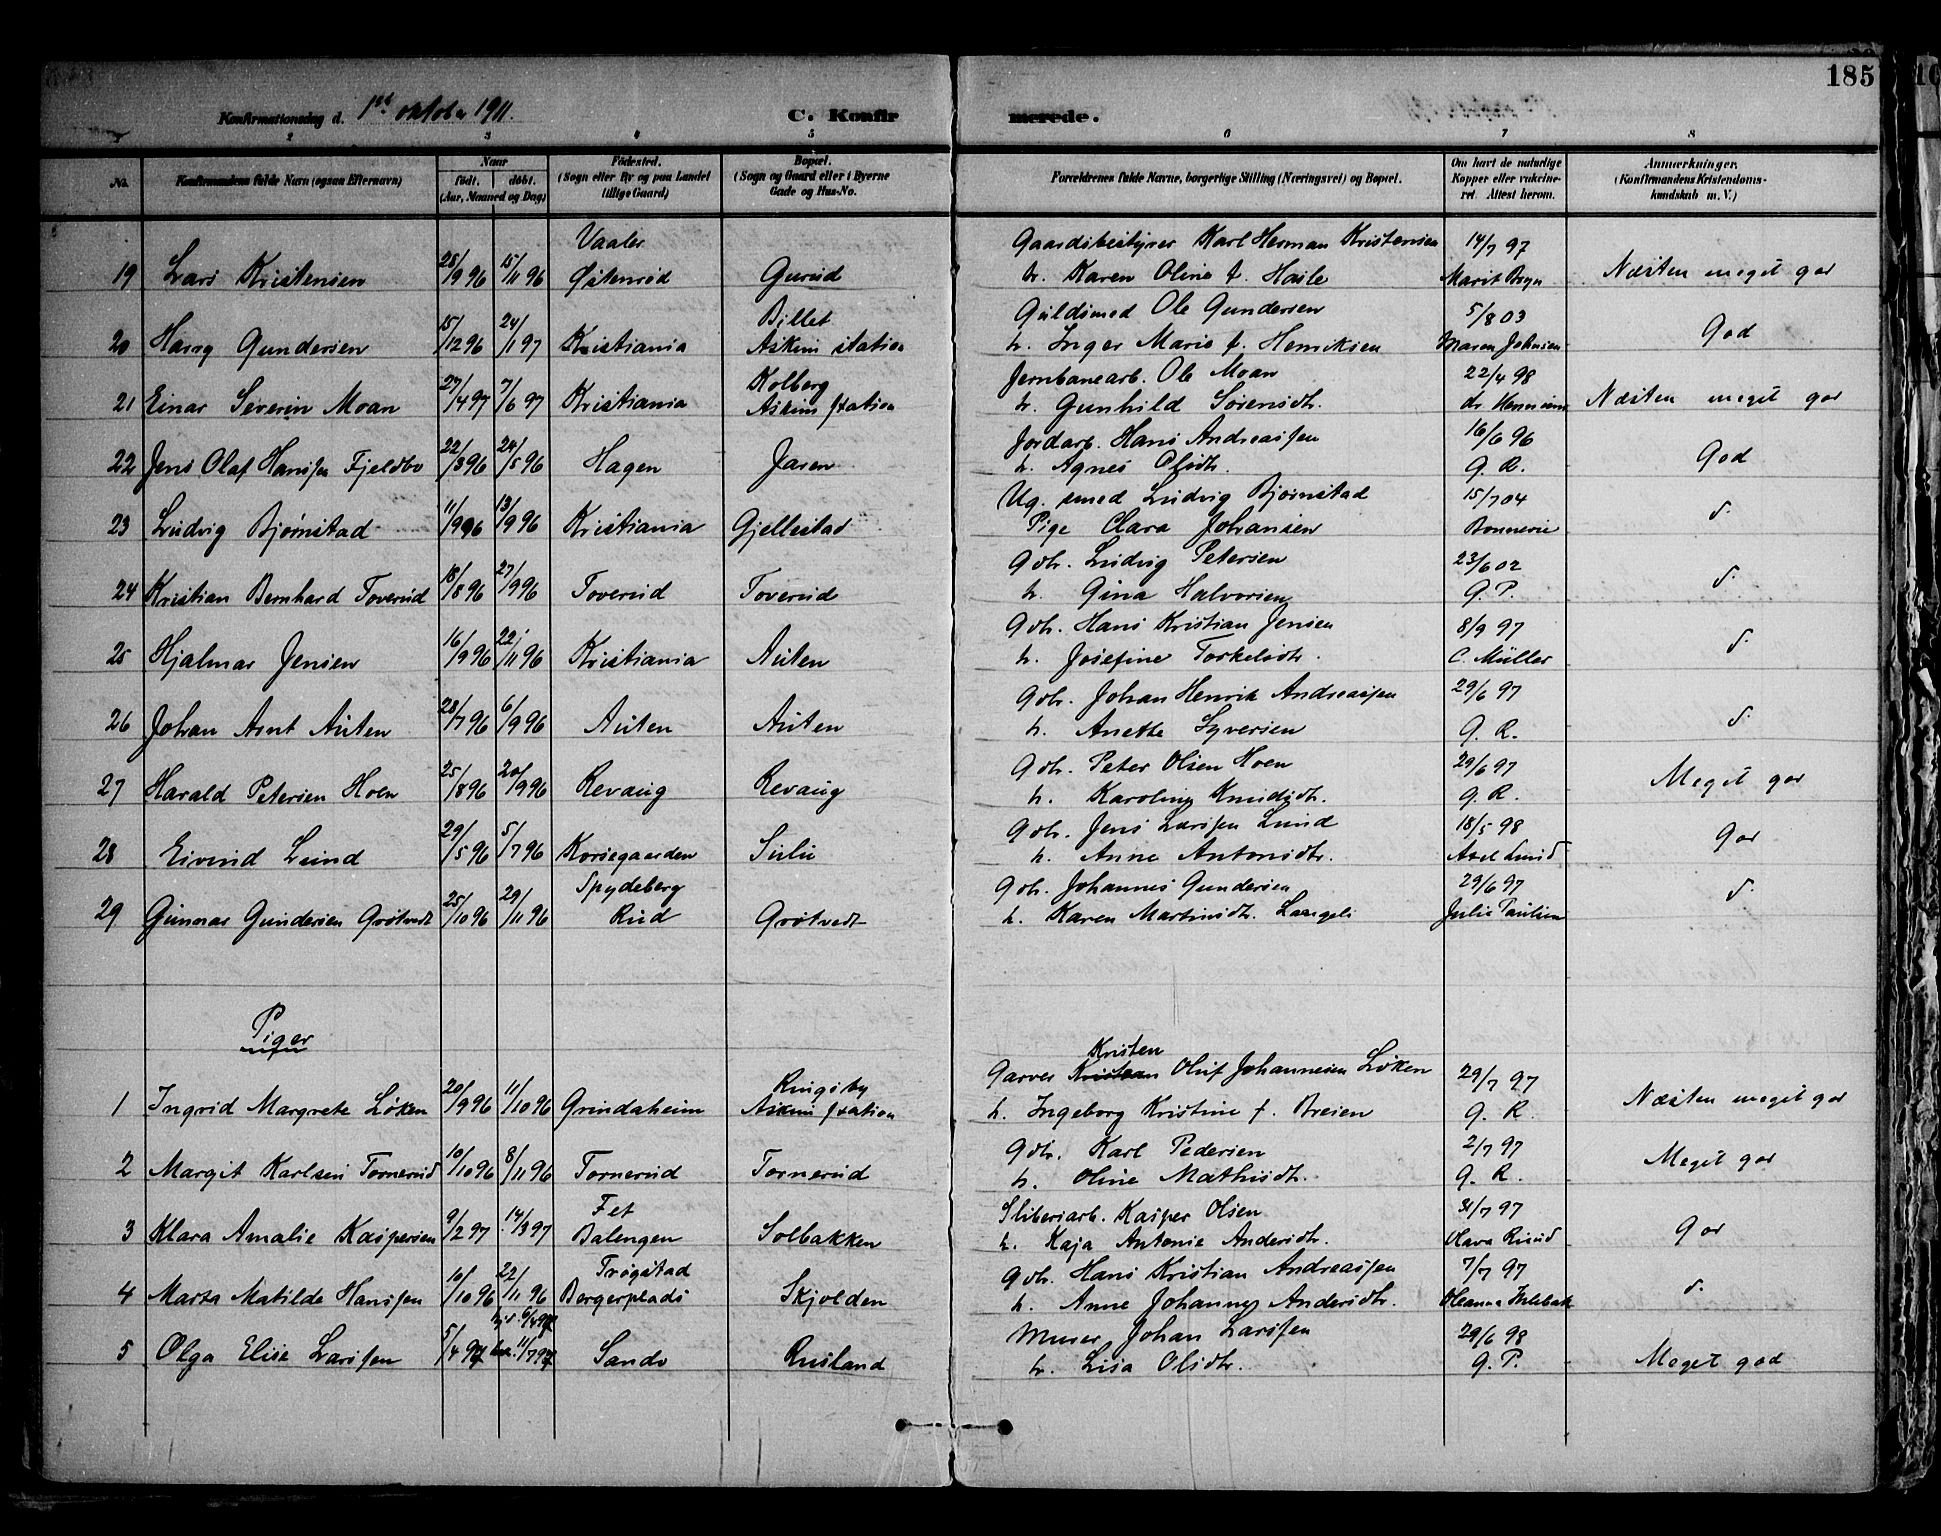 185
Konfirmationsdag d. 1ste oktober 1911.
C. Konfirmerede.
2 3 4 5 6 7 8
No.
Konfirmandens fulde Navn (ogsaa Efternavn)
Naar
født. døbt.
(Aar, Maaned og Dag)
Fødested.
(Sogn eller By og paa Landet
tillige Gaard)
Bopæl.
(Sogn og Gaard eller i Byerne
Gade og Hus-No.
Forældrenes fulde Navne, borgerlige Stilling (Næringsvei) og Bopæl.
Om havt de naturlige
Kopper eller vakcine-
ret. Attest herom.
Anmærkninger.
(Konfirmandens Kristendoms-
kundskab m. V.)
Vaaler Gaardsbestyrer Karl Herman Kristensen 14/7 97
19 Lars Kristensen 25/9 96 15/11 96 Østenrød Gurud h. Karen Oline f. Hasle Marit Bryn Næsten meget god
Billet Guldsmed Ole Gundersen 5/8 03
20 Harry Gundersen 15/12 96 24/1 97 Kristiania Askim station h. Inger Marie f. Henriksen Maren Johnsen God
Kolberg Jernbanearb. Ole Moan 22/4 98
21 Einar Severin Moan 27/4 97 7/6 97 Kristiania Askim station h. Gunhild Sørensdtr. Næsten meget god
Jordarb. Hans Andreassen 16/6 96
22 Jens Olaf Hanssen Fjeldbo 22/3 96 24/5 96 Hagen Jaren h. Agnes Olsdtr. G. R. God
Ug. smed Ludvig Bjørnstad 15/7 04
23 Ludvig Bjørnstad 11/9 96 13/9 96 Kristiania Gjellestad Pige Clara Johansen Bonnevie d.
Gdbr. Ludvig Petersen 23/6 02
24 Kristian Bernhard Toverud 18/8 96 27/9 96 Toverud Toverud h. Gina Halvorsen G. P. d.
Gdbr. Hans Kristian Jensen 8/9 97
25 Hjalmar Jensen 16/9 96 22/11 96 Kristiania Auten h. Josefine Torkelsdtr. C. Müller d.
Gdbr. Johan Henrik Andreassen 29/6 97
26 Johan Arnt Auten 28/7 96 6/9 96 Auten Auten h. Anette Syversen G. R. d.
Gdbr. Peter Olsen Hoen 29/6 97
27 Harald Petersen Hoen 25/8 96 20/9 96 Revaug Revaug h. Karoline Knudsdtr. G. R. Meget god
Gdbr. Jens Larssen Lund 18/5 98
28 Eivind Lund 29/5 96 5/7 96 Korsegaarden Sulu h. Anne Antonsdtr. Axel Lund God
Spydeberg Gdbr. Johannes Gundersen 29/6 97
29 Gunnar Gundersen Grøtvedt 25/10 96 29/11 96 Rud Grøtvedt h. Karen Martinsdtr. Langeli Julie Paulsen d.
Piger
Kristen
Ringsby Garver Kristian Oluf Johannesen Løken 29/7 97
1 Ingrid Margrete Løken 20/9 96 11/10 96 Grindaheim Askim station h. Ingeborg Kristine f. Breien G. R. Næsten meget god
Gdbr. Karl Pedersen 2/7 97
2 Margit Karlsen Tornerud 10/10 96 8/11 96 Tornerud Tornerud h. Oline Mathisdtr. G. R. Meget god
Fet Sliberiarb. Kasper Olsen 31/7 97
3 Klara Amalie Kaspersen 9/2 97 14/3 97 Balengen Solbakken h. Kaja Antonie Andersdtr. Olava Risud God
Trøgstad Gdbr. Hans Kristian Andreassen 7/7 97
4 Marta Matilde Hanssen 10/10 96 22/11 96 Bergerplads Skjolden h. Anne Johannes Andersdtr. Oleanna d.
hjd. 6/4 97 Murer Johan Larssen 29/6 98
5 Olga Elise Larssen 5/4 97 11/7 97 Sando Rusland h. Lisa Olsdtr. G. P. Meget god